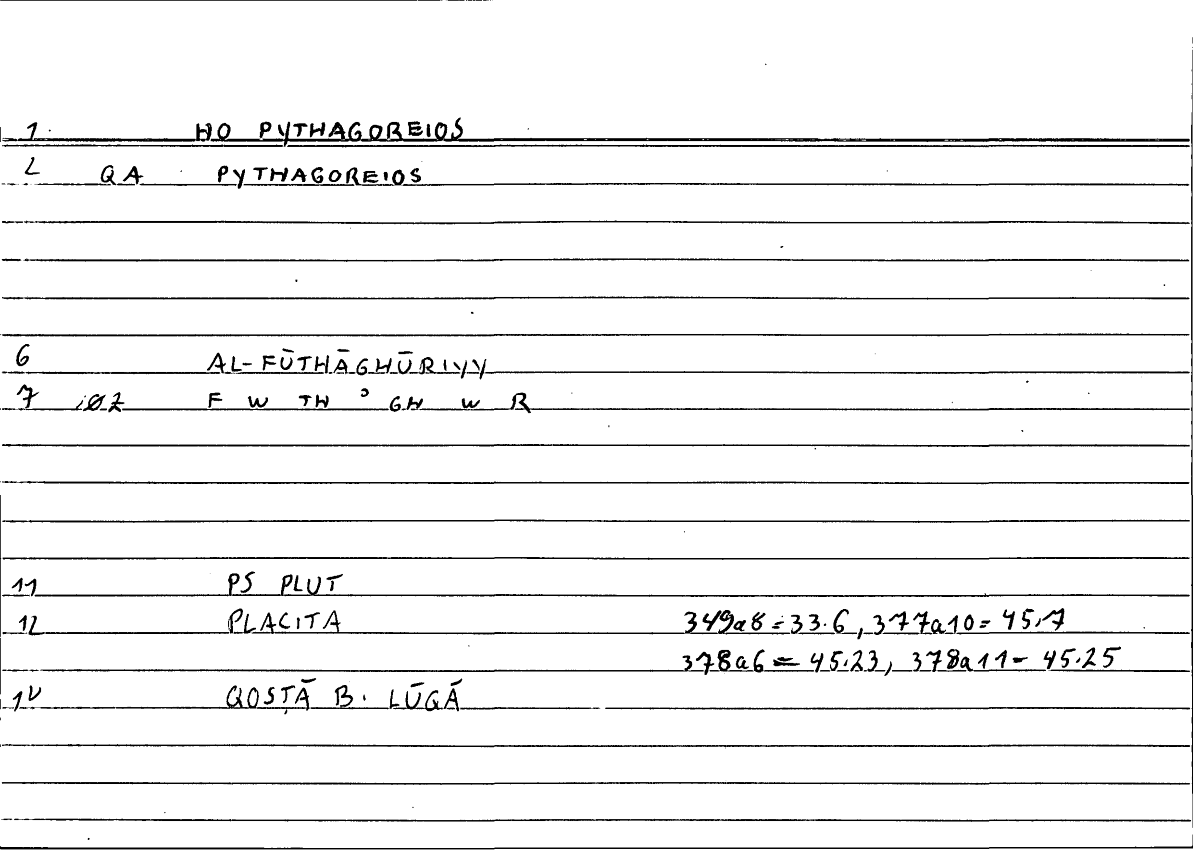 1 HO PYTHAGOREIOS
2 QA PYTHAGOREIOS
6 AL-FŪTHĀGHŪRIYY
7 102 F W TH ʾ GH W R
11 PS PLUT
12 PLACITA 349a8=33.6, 377a10=45.7
378a6=45.23, 378a11=45.25
14 QOSṬĀ B. LŪQĀ